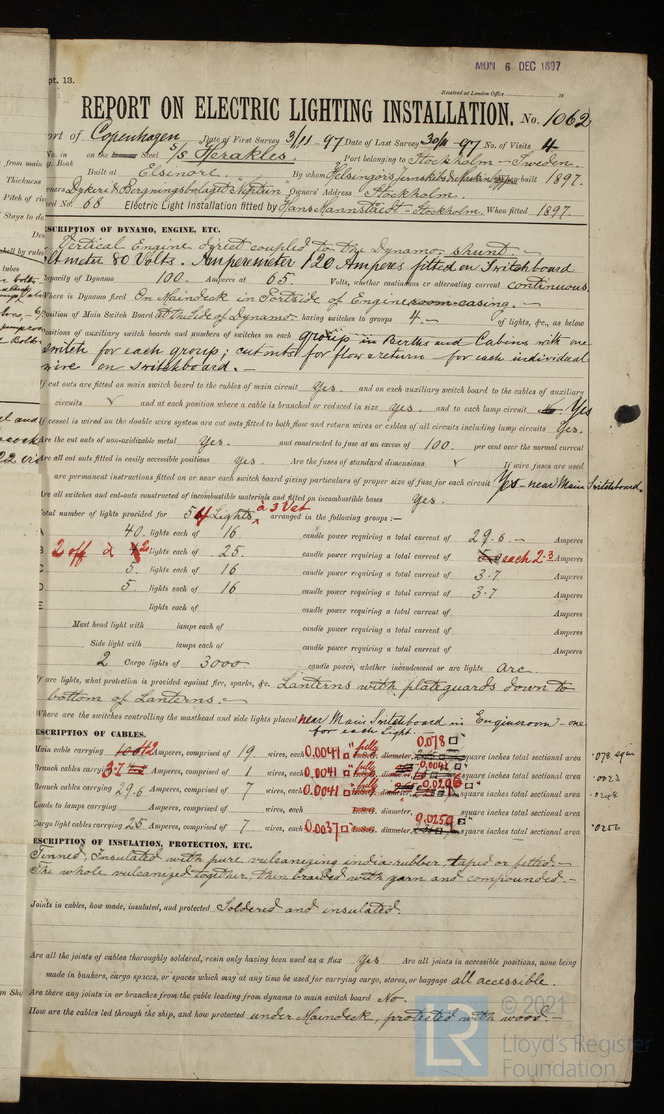 MON 6 DEC 1897
pt. 13.
Received at London Office 18
REPORT ON ELECTRIC LIGHTING INSTALLATION. No. 1062
ort of Copenhagen Date of First Survey 3/11-97 Date of Last Survey 30/11-97 No. of Visits 4
No. in on the Steel S/S Herakles. Port belonging to Stockholm - Sweden.
g. Book Built at Elsinore. By whom Helsingörs built 1897.
ners Dykeri & Bergningsbolaget Neptun Owners' Address Stockholm.
rd No. 68 Electric Light Installation fitted by Hans Mannstaedt - Stockholm. When fitted 1897.
ESCRIPTION OF DYNAMO, ENGINE, ETC.
Vertical Engine direct coupled to the Dynamo, shunt. -
meter 80 Volts. Amperemeter 120 Amperes fitted on Switchboard
apacity of Dynamo 100. Amperes at 65. Volts, whether continuous or alternating current continuous
Where is Dynamo fixed On Maindeck in Portside of Engineroom casing. -
osition of Main Switch Board at the side of Dynamo having switches to groups 4. - of lights, &c., as below
ositions of auxiliary switch boards and numbers of switches on each group in Berths and Cabins with one
switch for each group; cut outs for flow & return for each individual
wire on switchboard. -
f cut outs are fitted on main switch board to the cables of main circuit Yes. and on each auxiliary switch board to the cables of auxiliary
circuits ✓ and at each position where a cable is branched or reduced in size yes. and to each lamp circuit Yes
f vessel is wired on the double wire system are cut outs fitted to both flow and return wires or cables of all circuits including lamp circuits Yes.
re the cut outs of non-oxidizable metal Yes. and constructed to fuse at an excess of 100. per cent over the normal current
re all cut outs fitted in easily accessible positions Yes. Are the fuses of standard dimensions ✓ If wire fuses are used
are permanent instructions fitted on or near each switch board giving particulars of proper size of fuse for each circuit Yes - near Main Switchboard.
re all switches and cut-outs constructed of incombustible materials and fitted on incombustible bases Yes.
otal number of lights provided for 54 Lights à 3 Vat arranged in the following groups :—
A 40. lights each of 16 candle power requiring a total current of 29.6 - Amperes
B 2 off à 2 lights each of 25. candle power requiring a total current of each 2.3 Amperes
C 5. lights each of 16 candle power requiring a total current of 3.7 Amperes
D 5. lights each of 16 candle power requiring a total current of 3.7 Amperes
E lights each of candle power requiring a total current of Amperes
Mast head light with lamps each of candle power requiring a total current of Amperes
Side light with lamps each of candle power requiring a total current of Amperes
2 Cargo lights of 3000 candle power, whether incandescent or arc lights arc
f arc lights, what protection is provided against fire, sparks, &c. Lanterns with plateguards down to
bottom of Lanterns. -
Where are the switches controlling the masthead and side lights placed near Main Switchboard in Engineroom - one
for each light.
ESCRIPTION OF CABLES.
Main cable carrying 112 Amperes, comprised of 19 wires, each 0.0041 fully diameter, 0.078 square inches total sectional area .078 sq in
Branch cables carrying 3.7 Amperes, comprised of 1 wires, each 0.0041 fully diameter, 0.0041 square inches total sectional area .0023
Branch cables carrying 29.6 Amperes, comprised of 7 wires, each 0.0041 fully diameter, square inches total sectional area
Leads to lamps carrying Amperes, comprised of wires, each L.S.G. diameter, square inches total sectional area
Cargo light cables carrying 25 Amperes, comprised of 7 wires, each 0.0037 L.S.G. diameter, 0.0259 square inches total sectional area .0256
ESCRIPTION OF INSULATION, PROTECTION, ETC.
Tinned, Insulated with pure vulcanizing india-rubber, taped or felted -
The whole vulcanized together, then braided with yarn and compounded. -
Joints in cables, how made, insulated, and protected Soldered and insulated.
Are all the joints of cables thoroughly soldered, resin only having been used as a flux Yes. Are all joints in accessible positions, none being
made in bunkers, cargo spaces, or spaces which may at any time be used for carrying cargo, stores, or baggage all accessible.
Are there any joints in or branches from the cable leading from dynamo to main switch board No.
How are the cables led through the ship, and how protected under Maindeck, protected with wood. -
© 2021
LR Lloyd's Register
Foundation